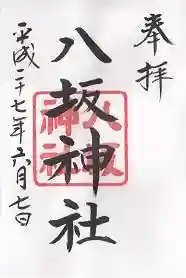 奉拝
八坂神社
八坂神社
平成二十七年六月七日